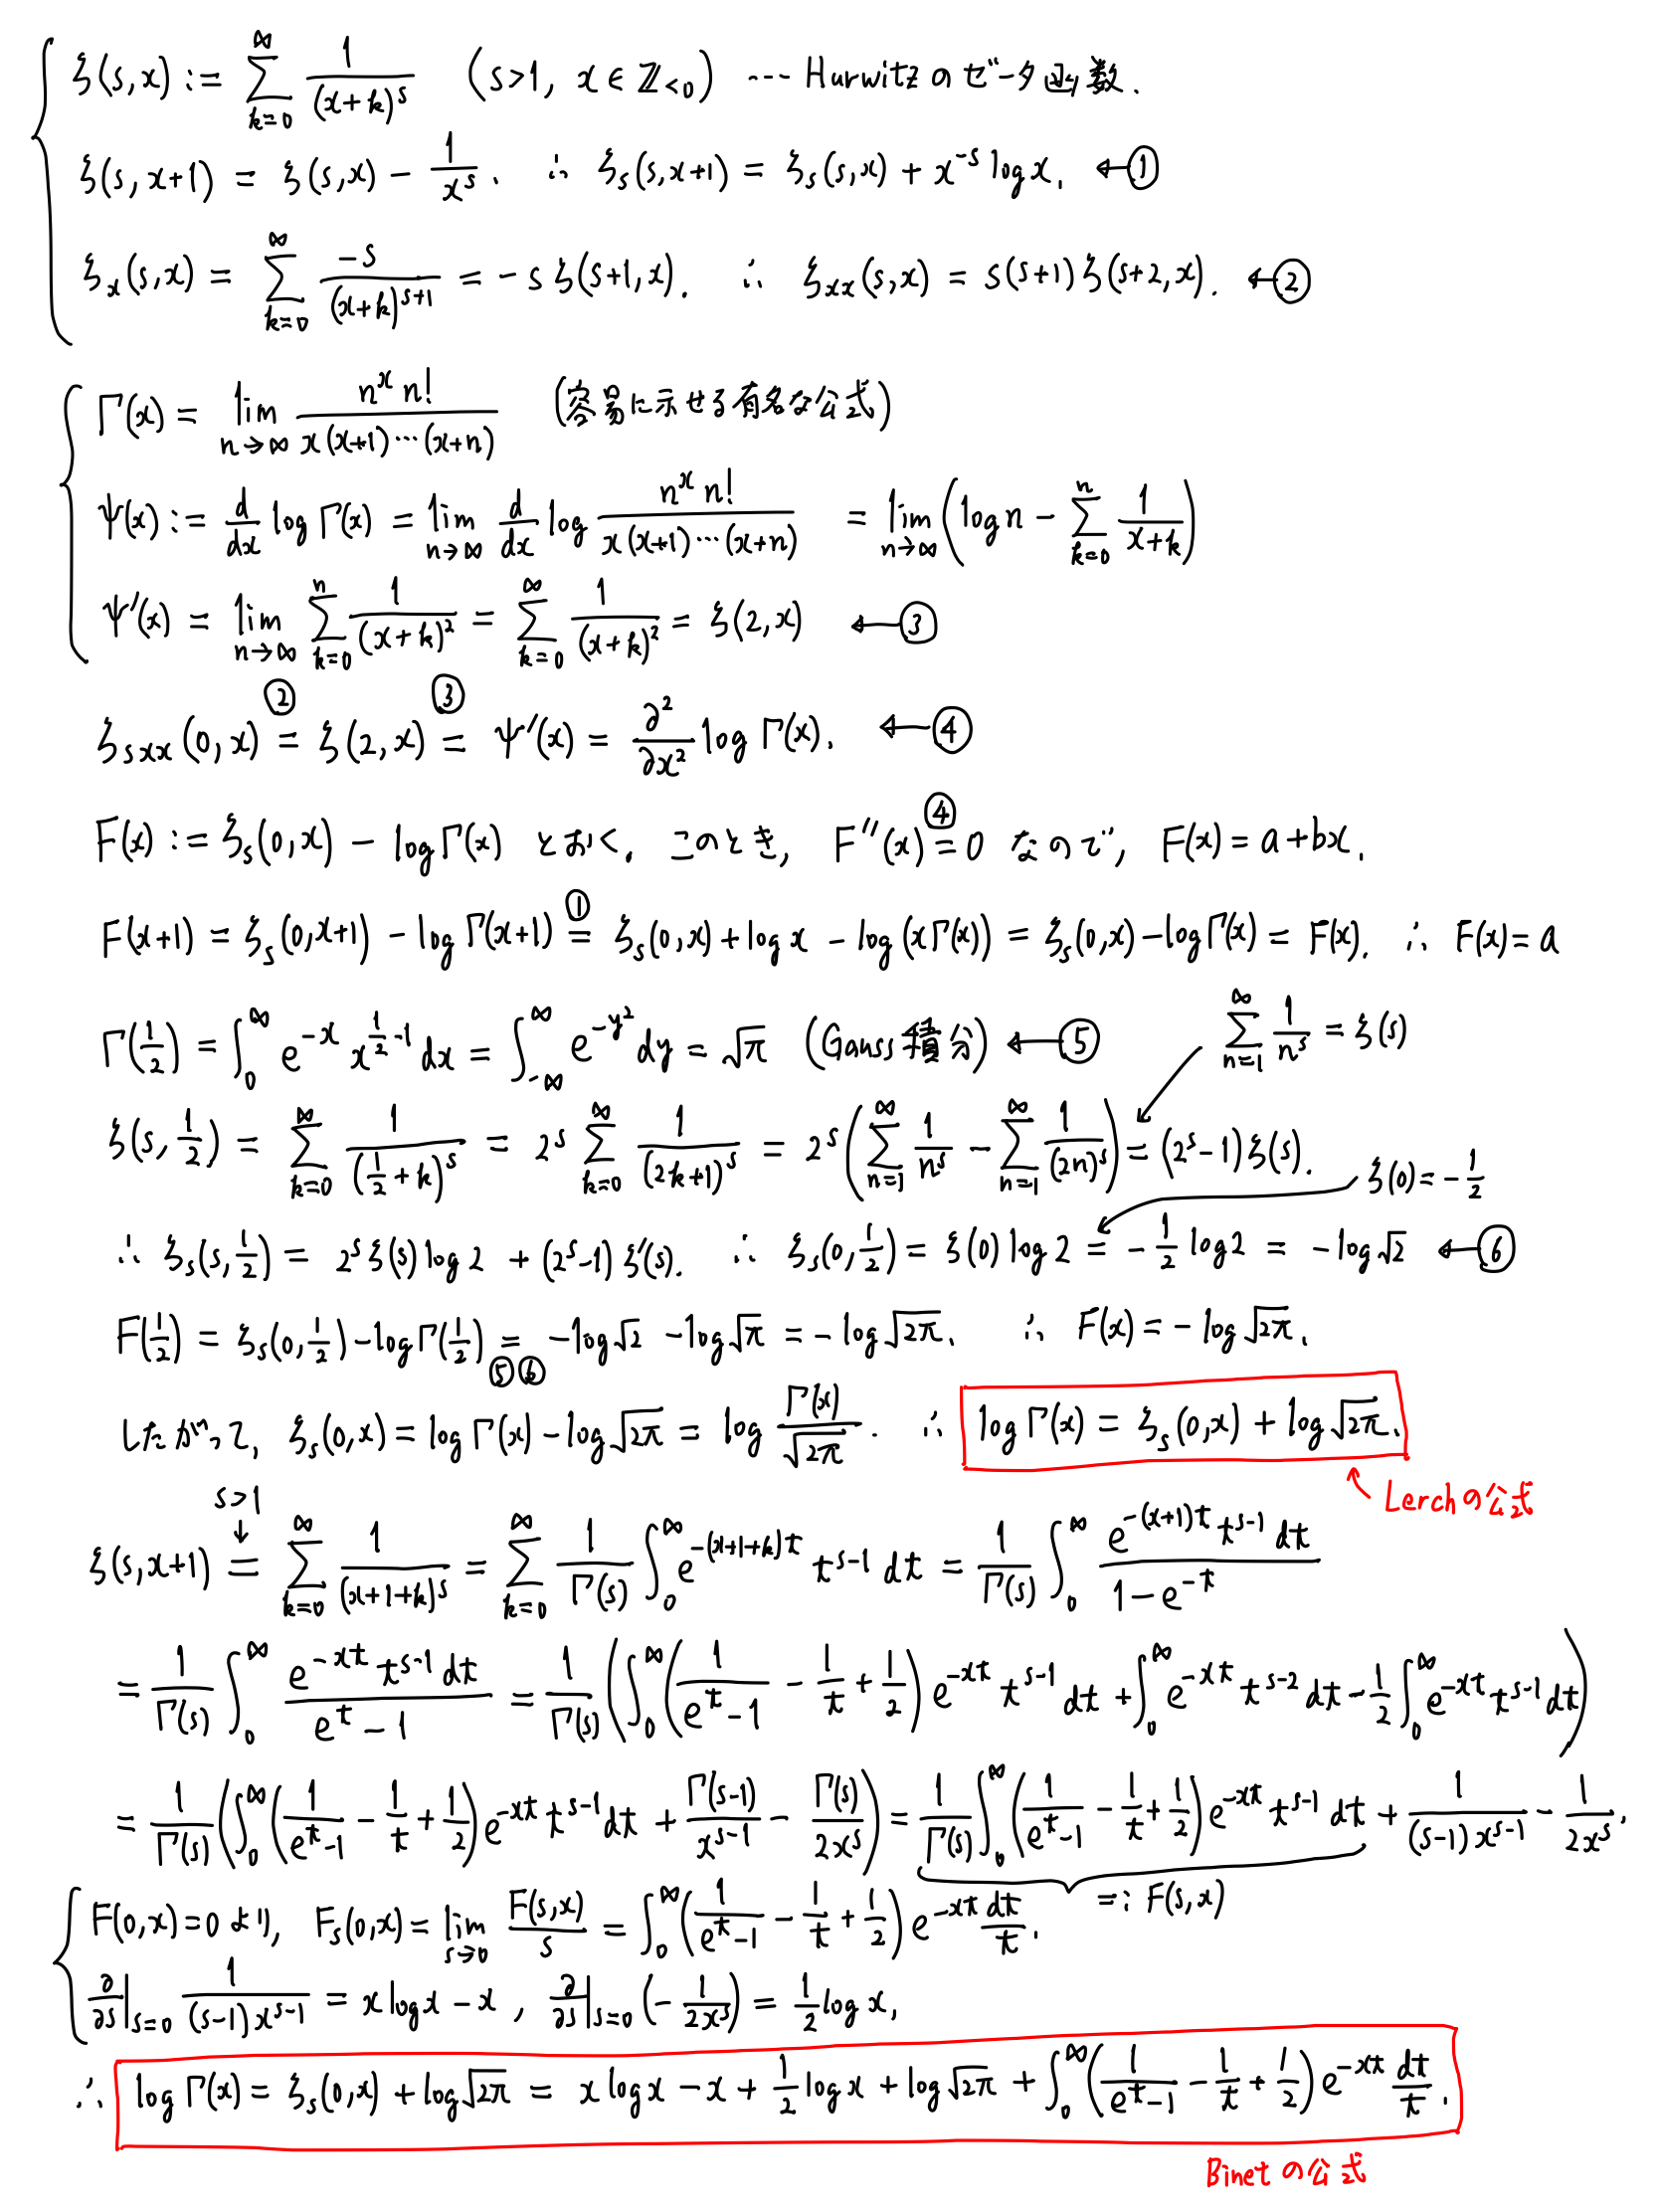 ζ(s,x) := \sum_{k=0}^{∞} \frac{1}{(x+k)^s} (s>1, x∈ℤ_{<0}) … Hurwitzのゼータ函数.
ζ(s,x+1) = ζ(s,x) - \frac{1}{x^s}. ∴ ζ_s(s,x+1) = ζ_s(s,x) + x^{-s} log x. ←①
ζ_x(s,x) = \sum_{k=0}^{∞} \frac{-s}{(x+k)^{s+1}} = -sζ(s+1,x). ∴ ζ_{xx}(s,x) = s(s+1)ζ(s+2,x). ←②
Γ(x) = \lim_{n→∞} \frac{n^x n!}{x(x+1)⋯(x+n)} (容易に示せる有名な公式)
Ψ(x) := \frac{d}{dx} log Γ(x) = \lim_{n→∞} \frac{d}{dx} log \frac{n^x n!}{x(x+1)⋯(x+n)} = \lim_{n→∞} (log n - \sum_{k=0}^{n} \frac{1}{x+k})
Ψ'(x) = \lim_{n→∞} \sum_{k=0}^{n} \frac{1}{(x+k)^2} = \sum_{k=0}^{∞} \frac{1}{(x+k)^2} = ζ(2,x) ←③
ζ_{sxx}(0,x) \overset{②}{=} ζ(2,x) \overset{③}{=} Ψ'(x) = \frac{∂^2}{∂x^2} log Γ(x). ←④
F(x) := ζ_s(0,x) - log Γ(x) とおく. このとき, F''(x) \overset{④}{=} 0 なので, F(x) = a+bx.
F(x+1) = ζ_s(0,x+1) - log Γ(x+1) \overset{①}{=} ζ_s(0,x) + log x - log(xΓ(x)) = ζ_s(0,x) - log Γ(x) = F(x). ∴ F(x) = a
Γ(\frac{1}{2}) = \int_0^∞ e^{-x} x^{\frac{1}{2}-1} dx = \int_{-∞}^{∞} e^{-y^2} dy = √π (Gauss積分) ←⑤ \sum_{n=1}^{∞} \frac{1}{n^s} = ζ(s)
ζ(s,\frac{1}{2}) = \sum_{k=0}^{∞} \frac{1}{(\frac{1}{2}+k)^s} = 2^s \sum_{k=0}^{∞} \frac{1}{(2k+1)^s} = 2^s (\sum_{n=1}^{∞} \frac{1}{n^s} - \sum_{n=1}^{∞} \frac{1}{(2n)^s}) = (2^s-1)ζ(s). ζ(0) = -\frac{1}{2}
∴ ζ_s(s,\frac{1}{2}) = 2^s ζ(s) log 2 + (2^s-1)ζ'(s). ∴ ζ_s(0,\frac{1}{2}) = ζ(0) log 2 = -\frac{1}{2} log 2 = -log√2 ←⑥
F(\frac{1}{2}) = ζ_s(0,\frac{1}{2}) - log Γ(\frac{1}{2}) \underset{⑤⑥}{=} -log√2 - log√π = -log√{2π}. ∴ F(x) = -log√{2π}.
したがって, ζ_s(0,x) = log Γ(x) - log√{2π} = log \frac{Γ(x)}{√{2π}}. ∴ log Γ(x) = ζ_s(0,x) + log√{2π}.
Lerchの公式
s>1
ζ(s,x+1) = \sum_{k=0}^{∞} \frac{1}{(x+1+k)^s} = \sum_{k=0}^{∞} \frac{1}{Γ(s)} \int_0^∞ e^{-(x+1+k)t} t^{s-1} dt = \frac{1}{Γ(s)} \int_0^∞ \frac{e^{-(x+1)t} t^{s-1} dt}{1-e^{-t}}
= \frac{1}{Γ(s)} \int_0^∞ \frac{e^{-xt} t^{s-1} dt}{e^t-1} = \frac{1}{Γ(s)} (\int_0^∞ (\frac{1}{e^t-1} - \frac{1}{t} + \frac{1}{2}) e^{-xt} t^{s-1} dt + \int_0^∞ e^{-xt} t^{s-2} dt - \frac{1}{2} \int_0^∞ e^{-xt} t^{s-1} dt)
= \frac{1}{Γ(s)} (\int_0^∞ (\frac{1}{e^t-1} - \frac{1}{t} + \frac{1}{2}) e^{-xt} t^{s-1} dt + \frac{Γ(s-1)}{x^{s-1}} - \frac{Γ(s)}{2x^s}) = \frac{1}{Γ(s)} \int_0^∞ (\frac{1}{e^t-1} - \frac{1}{t} + \frac{1}{2}) e^{-xt} t^{s-1} dt + \frac{1}{(s-1)x^{s-1}} - \frac{1}{2x^s}.
=: F(s,x)
F(0,x) = 0 より, F_s(0,x) = \lim_{s→0} \frac{F(s,x)}{s} = \int_0^∞ (\frac{1}{e^t-1} - \frac{1}{t} + \frac{1}{2}) e^{-xt} \frac{dt}{t}.
\frac{∂}{∂s}|_{s=0} \frac{1}{(s-1)x^{s-1}} = x log x - x, \frac{∂}{∂s}|_{s=0} (-\frac{1}{2x^s}) = \frac{1}{2} log x,
∴ log Γ(x) = ζ_s(0,x) + log√{2π} = x log x - x + \frac{1}{2} log x + log√{2π} + \int_0^∞ (\frac{1}{e^t-1} - \frac{1}{t} + \frac{1}{2}) e^{-xt} \frac{dt}{t}.
Binetの公式